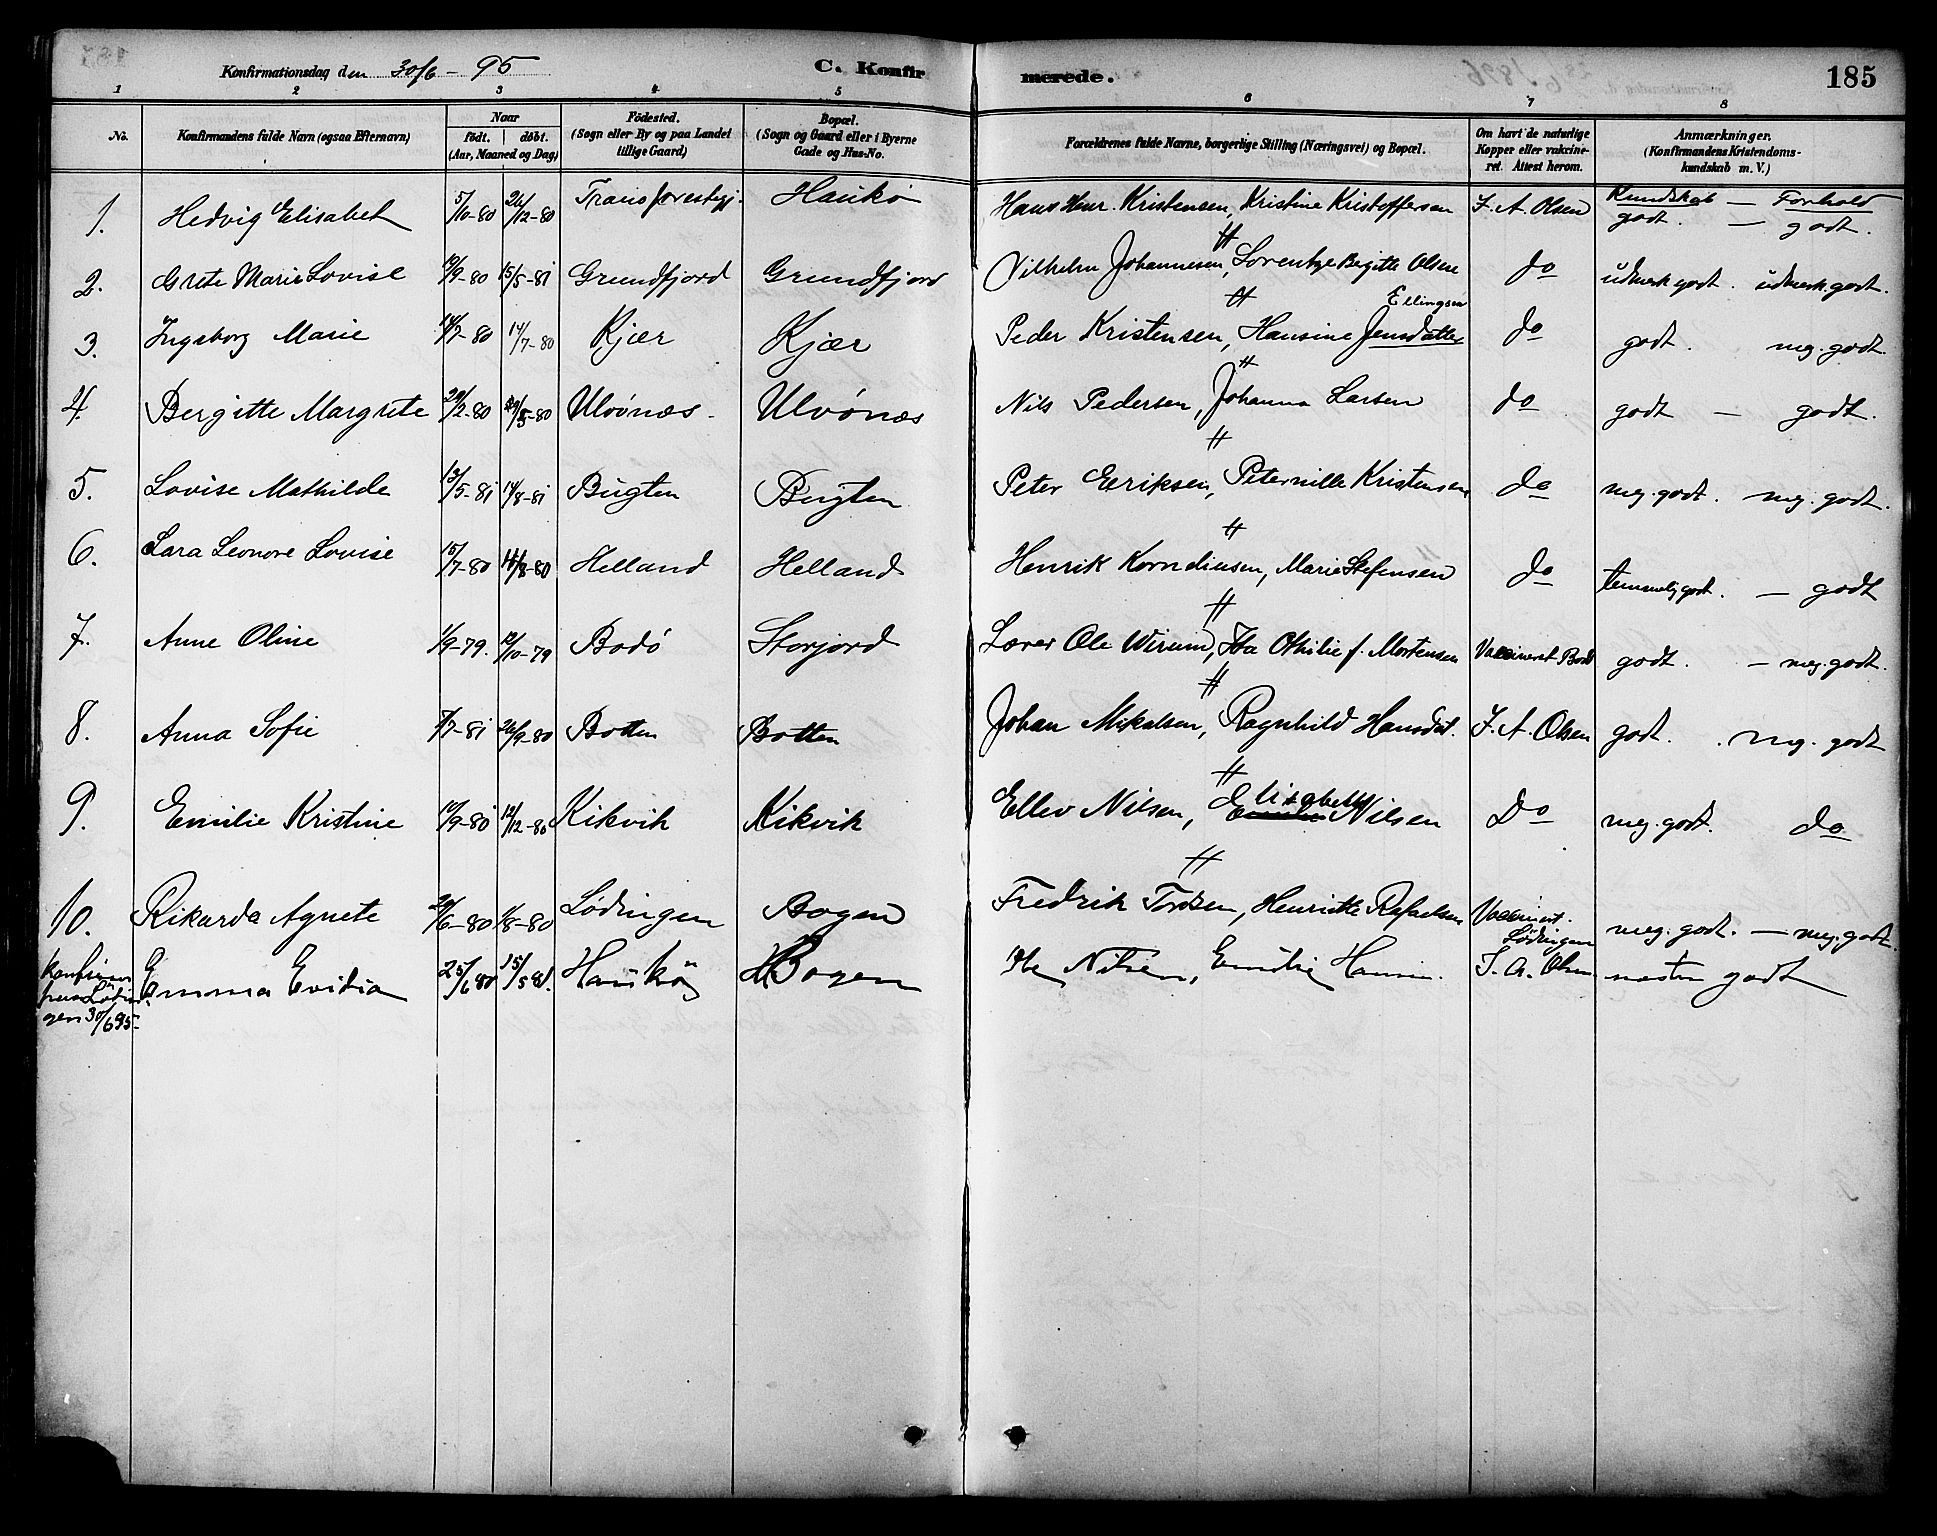 Konfirmationsdag den 30/6 - 95 C. Konfirmerede. 185
1 2 3 4 5 6 7 8
No. Konfirmandens fulde Navn (ogsaa Efternavn) Naar født. døbt. (Aar, Maaned og Dag) Fødested. (Sogn eller By og paa Landet tillige Gaard) Bopæl. (Sogn og Gaard eller i Byerne Gade og Hus-No. Forældrenes fulde Navne, borgerlige Stilling (Næringsvei) og Bopæl. Om havt de naturlige Kopper eller vaccineret. Attest herom. Anmærkninger. (Konfirmandens Kristendomskundskab m. V.)
Kundskab — Forhold
1. Hedvig Elisabet 5/10-80 26/12-80 Haukø Hans Henr. Kristensen, Kristine Kristoffersen J. A. Olsen godt. — godt.
2. Grete Marie Lovise 19/9-80 15/5-81 Grundfjord Grundfjord Vilhelm Johannesen, Lorentze Begitte Olsen do udmerk godt. udmerk. godt.
Ellingsen
3. Ingeborg Marie 14/2-80 14/7-80 Kjær Kjær Peder Kristensen, Hansine Jensdatter do godt. meg. godt.
4. Bergitte Margrete 29/2-80 29/5-80 Ulvønæs. Ulvønæs Nils Pedersen, Johanna Larsen do godt — godt.
5. Lovise Mathilde 13/5-81 14/8-81 Bugten Bugten Peter Eeriksen, Peternille Kristensen do meg. godt. meg. godt.
6. Lara Leonore Lovise 15/7-80 14/8-80 Helland Helland Henrik Korneliusen, Marie Stefensen do temmelig godt. — godt
7. Anne Oline 1/9-79. 12/10-79 Bodø Storjord Lærer Ole Wirum, Ida Othilie f. Mortensen Vaccineret Bodø godt. — meg. godt.
8. Anna Sofie 7/7-81 26/9-80 Botten Botten Johan Mikalsen, Ragnhild Hansdat. J. A. Olsen godt. meg. godt
9. Emilie Kristine 14/9-80 12/12-80 Kikvik Kikvik Ellev Nilsen, Elisabeth Nilsen Do meg. godt. do
10. Rikarda Agnete 29/6-80 1/8-80 Lødingen Bogen Fredrik Tordsen, Henriette Rafaelsen Vaccineret. Lødingen meg. godt. — meg. godt.
Konfirm. Lødingen 30/6 95. Emma Evidia 25/6 80 15/5 81. Haukø Bogen Ole Nilsen, Emilie J. A. Olsen næsten godt